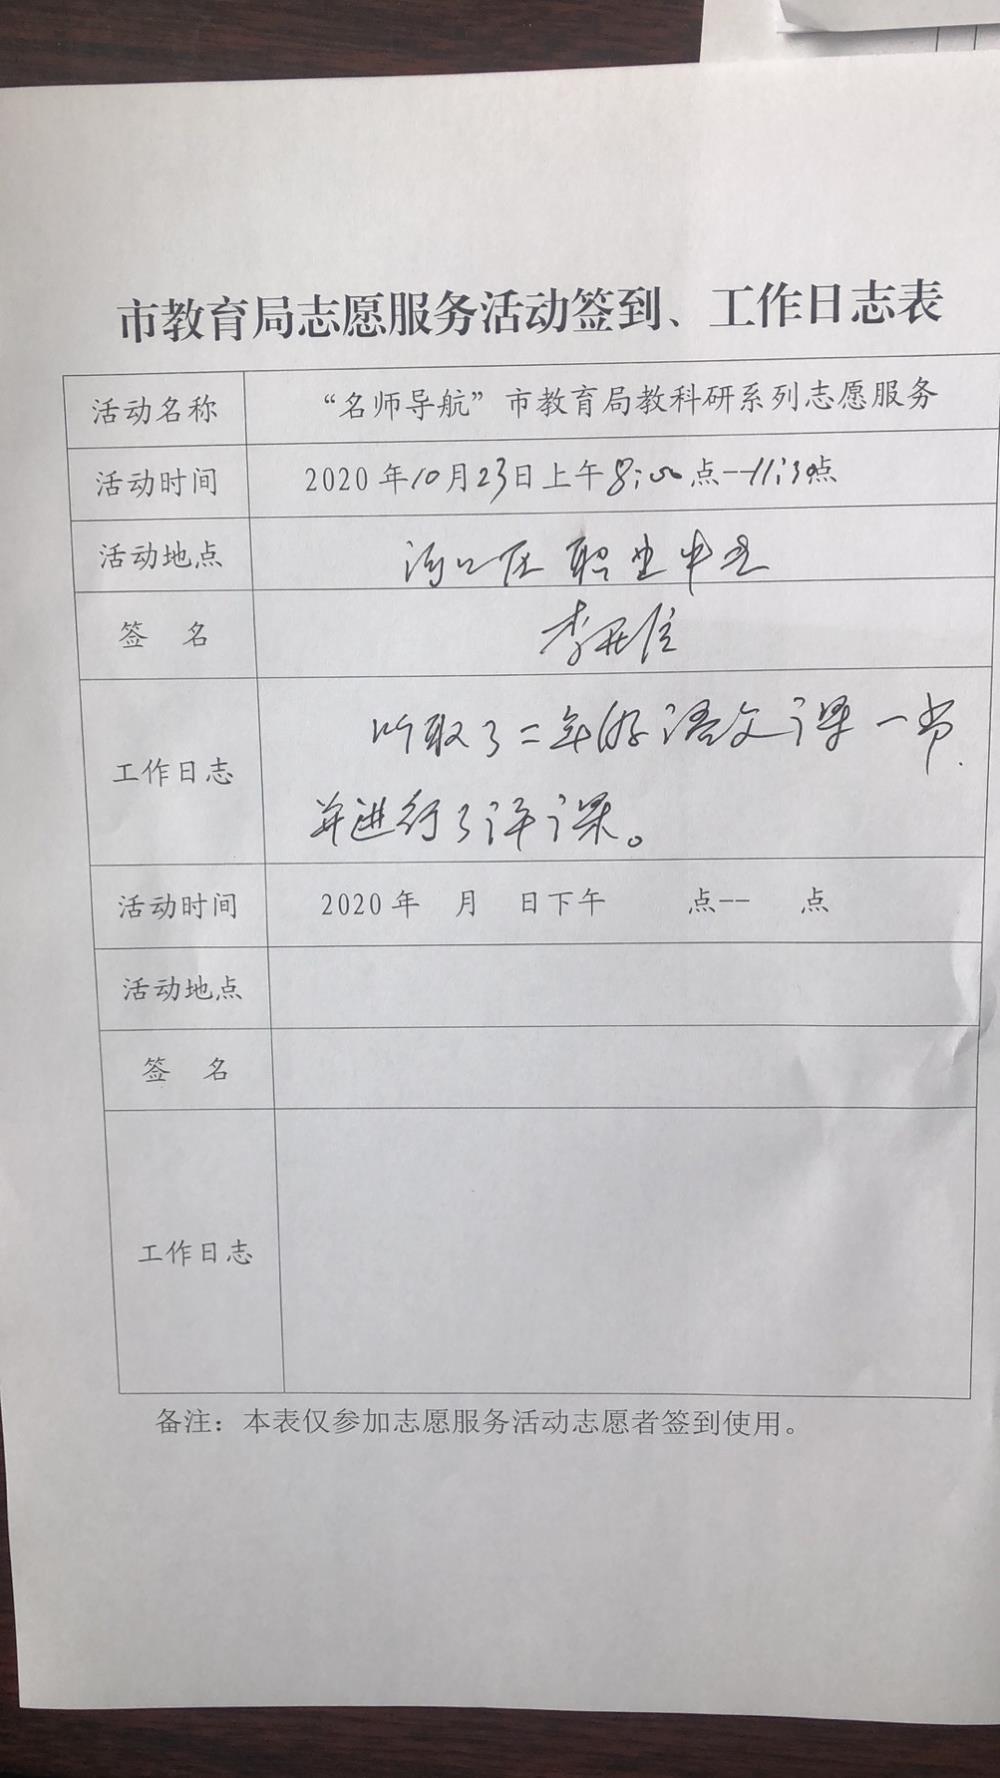 市教育局志愿服务活动签到、工作日志表
活动名称 “名师导航”市教育局教科研系列志愿服务
活动时间 2020年10月23日上午8:00点--11:30点
活动地点 口区职业中专
签 名 李
工作日志 听取了二年级语文课一节
并进行了评课。
活动时间 2020年 月 日下午 点-- 点
活动地点
签 名
工作日志
备注：本表仅参加志愿服务活动志愿者签到使用。